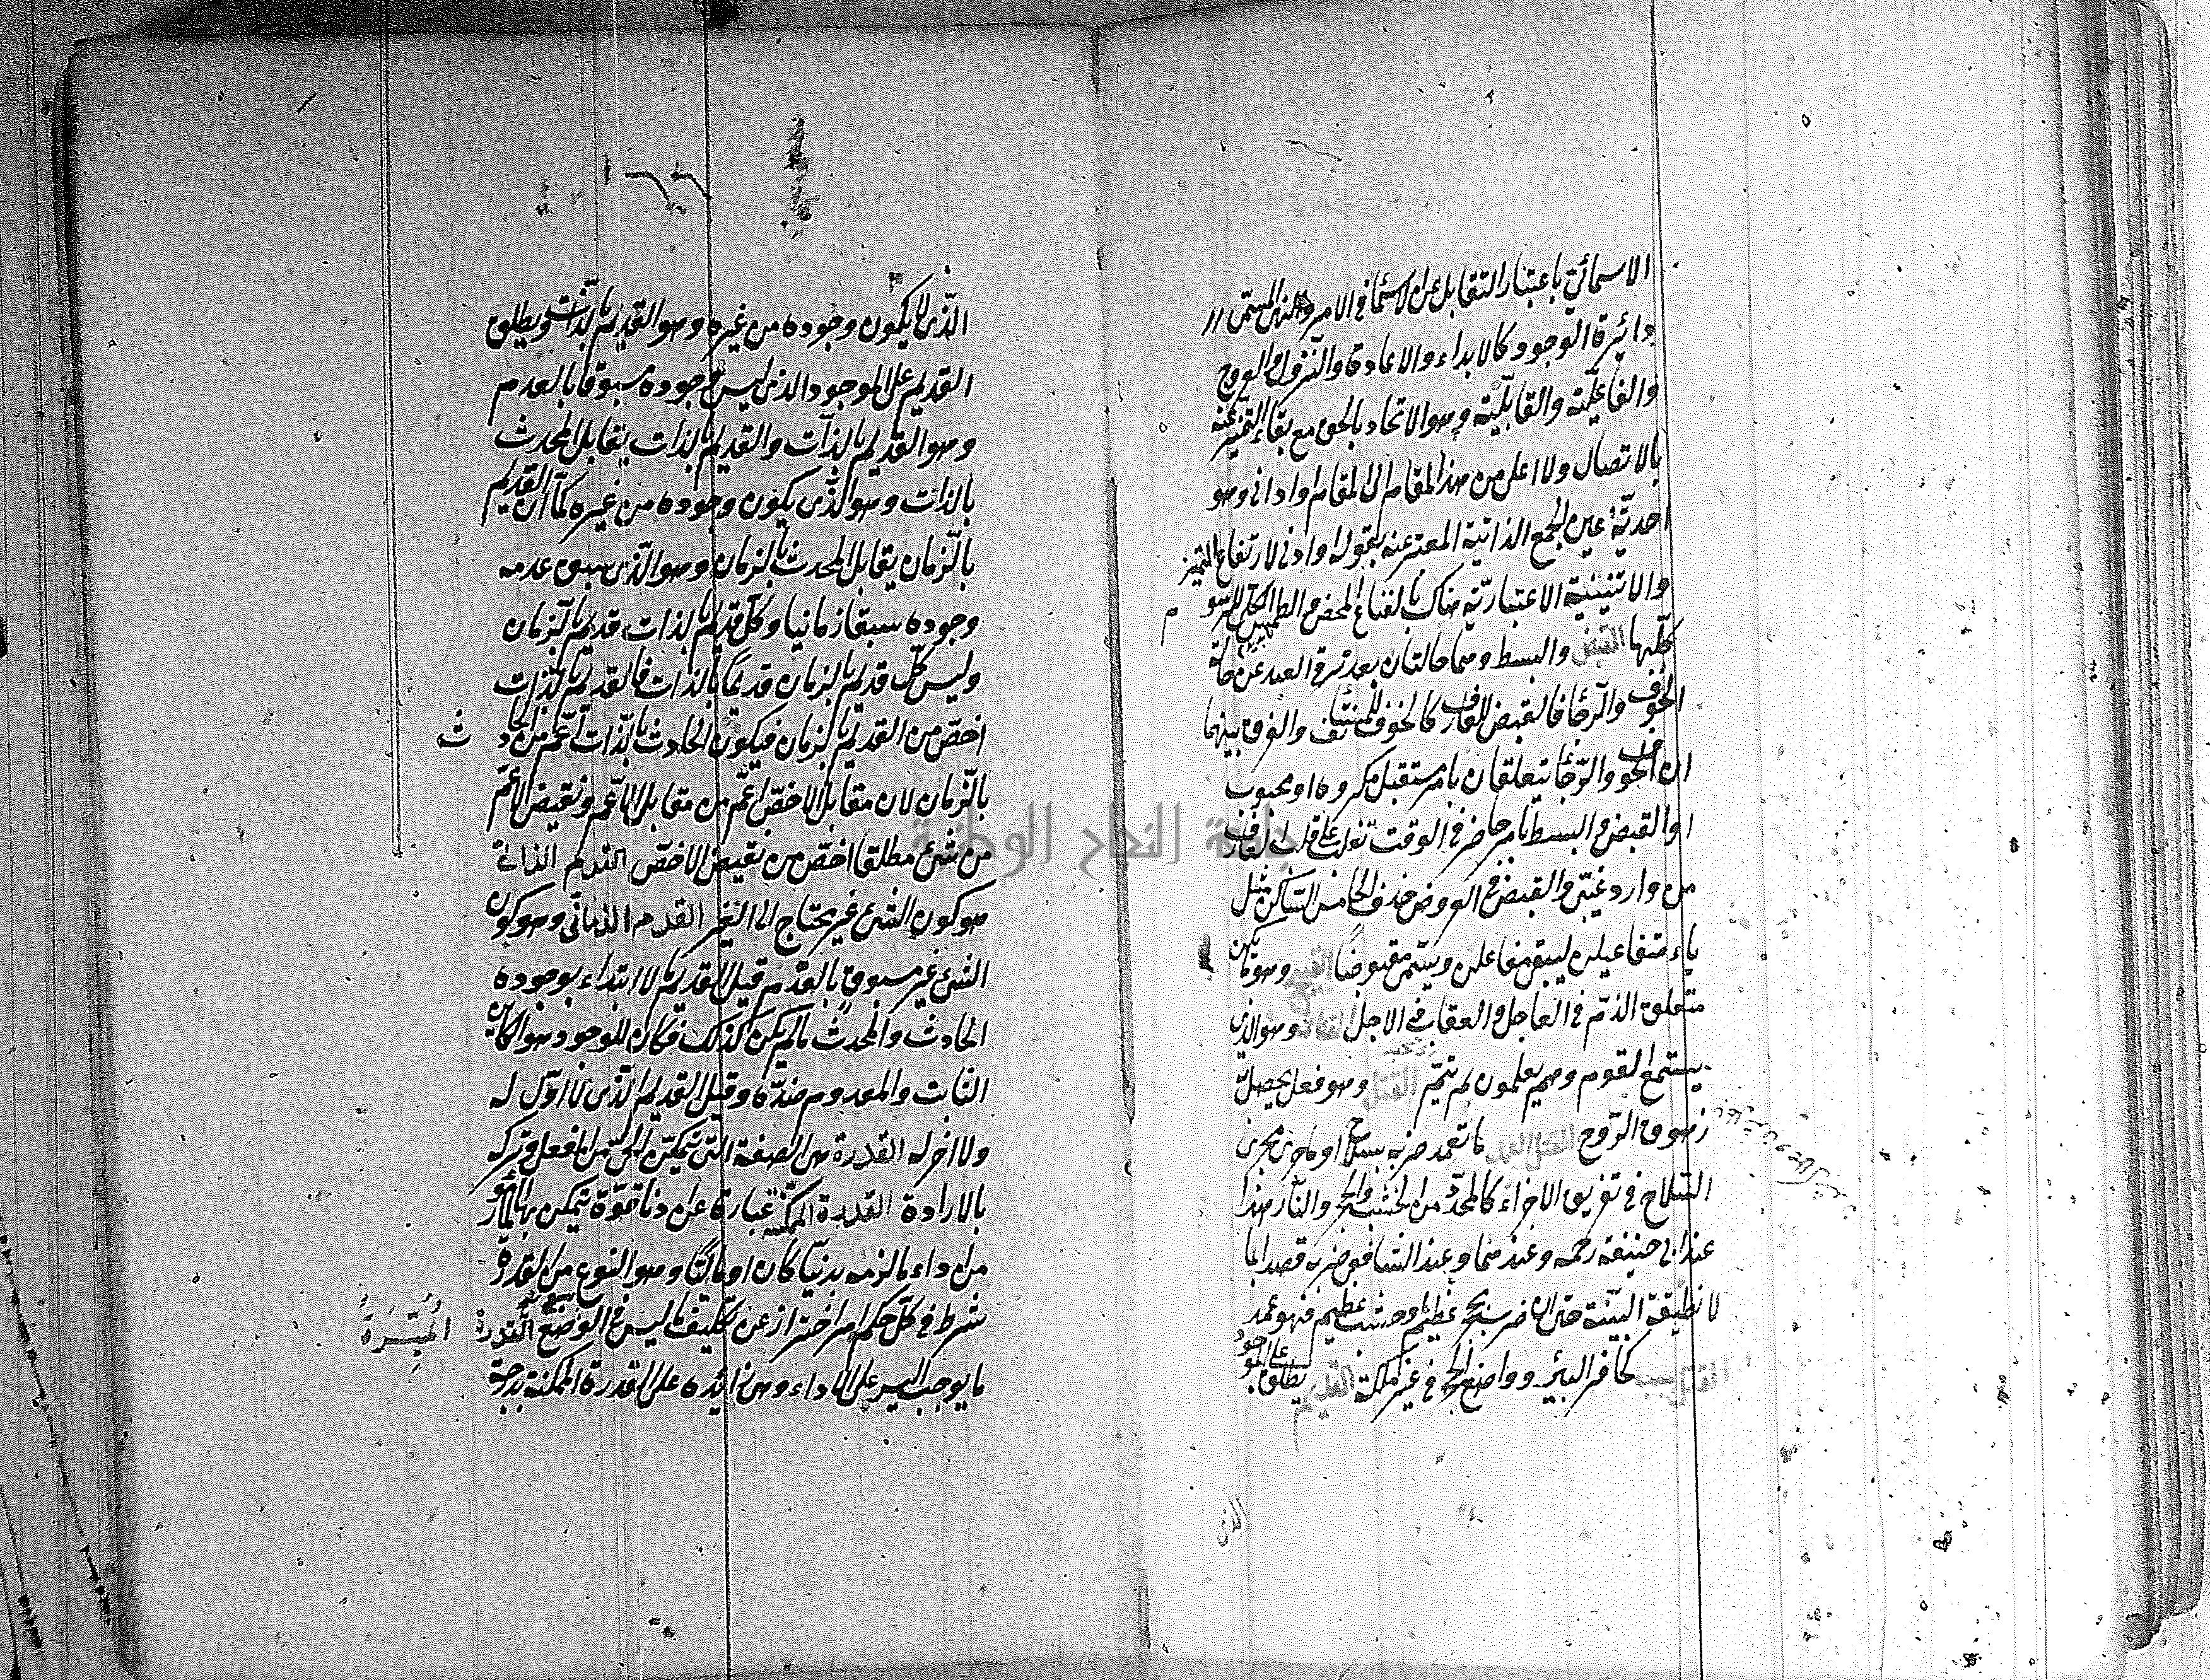 الاسمائي باعتبار التقابل بين الاسماء في الامر الالهي المسمى
دائرة الوجود كالابداء والاعادة والنزول والعروج
والفاعلية والقابلية وهو الاتحاد بالحق مع بقاء التميز المعبر عنه
بالاتصال ولا اعلى من هذا المقام الا المقام او ادنى وهو
احدية عين الجمع الذاتية المعبر عنه بقوله او ادنى لارتفاع التميز
والاثنينية الاعتبارية هناك بالفناء المحض والطمس الكلي للرسوم
كلها القبض والبسط وهما حالتان بعد ترقي العبد عن حالة
الخوف والرجاء فالقبض للعارف كالخوف للمستأنف والفرق بينهما
ان الخوف والرجاء يتعلقان بامر مستقبل مكروه او محبوب
والقبض والبسط بامر حاضر في الوقت تغلب على قلب العارف
من وارد غيبي والقبض في العروض حذف الخامس الساكن مثل
ياء مفاعيلن ليبقى مفاعلن ويسمى مقبوضا القبيح وهو ما يكون
متعلق الذم في العاجل والعقاب في الاجل القتات وهو الذي
يستمع القوم وهم لا يعلمون ثم ينم القتل وهو فعل يحصل به
زهوق الروح القتل العمد ما تعمد ضربه بسلاح او ما جرى مجرى
السلاح في تفريق الاجزاء كالمحدد من الخشب والحجر والنار هذا
عند ابى حنيفة رحمه وعندهما وعند الشافعى ضربه قصدا بما
لا تطيقه البينة حتى ان ضربه بحجر عظيم او خشب عظيم فهو عمد
القتل بسبب كحافر البئر وواضع الحجر في غير ملكه القديم يطلق على الموجود
الذى
الذى لا يكون وجوده من غيره وهو القديم بالذات ويطلق
القديم على الموجود الذى ليس وجوده مسبوقا بالعدم
وهو القديم بالذات والقديم بالذات يقابل المحدث
بالذات وهو الذى يكون وجوده من غيره كما ان القديم
بالزمان يقابل المحدث بالزمان وهو الذى سبق عدمه
وجوده سبقا زمانيا وكل قديم بالذات قديم بالزمان
وليس كل قديم بالزمان قديما بالذات فالقديم بالذات
اخص من القديم بالزمان فيكون الحادث بالذات اعم من الحادث
بالزمان لان مقابل الاخص اعم من مقابل الاعم ونقيض الاعم
من شئ مطلقا اخص من نقيض الاخص القدم الذاتى
هو كون الشئ غير محتاج الى الغير القدم الزمانى وهو كون
الشئ غير مسبوق بالعدم قيل القديم لا ابتداء بوجوده
الحادث والمحدث ما لم يكن كذلك فكان الموجود هو الكائن
الثابت والمعدوم ضده وقيل القديم الذى لا اول له
ولا اخر له القدرة هى الصفة التى تمكن الحى من الفعل وتركه
بالارادة القدرة الممكنة عبارة عن ادنا قوة يتمكن بها المأمور
من اداء ما لزمه بدنيا كان او ماليا وهو النوع من القدرة
شرط في كل حكم امر احتراز عن تكليف ما ليس في الوضع القدرة الميسرة
ما يوجب اليسر على الاداء وهى زائدة على القدرة الممكنة بدرجة
جامعة النجاح الوطنية